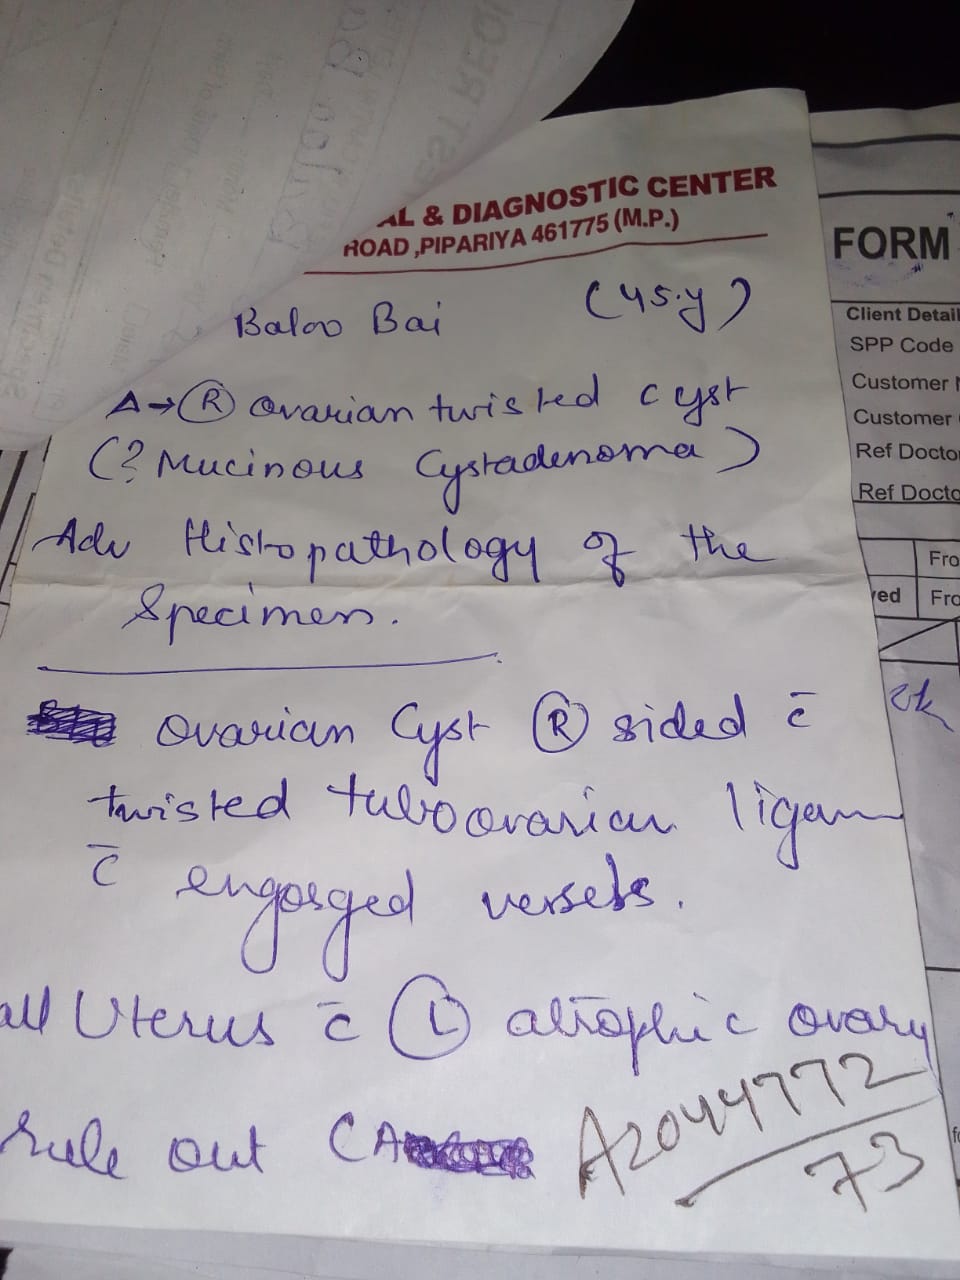 AL & DIAGNOSTIC CENTER
ROAD ,PIPARIYA 461775 (M.P.)
Baloo Bai (45.y)
A→Ⓡ ovarian twisted cyst
(? Mucinous Cystadenoma)
Adv Histopathology of the
Specimen.
Ovarian Cyst Ⓡ sided c̄
twisted tuboovarian ligam
c̄ engorged vessels.
all Uterus c̄ Ⓛ atrophic ovary
rule out CA
A2044772
73
FORM
Client Detail
SPP Code
Customer N
Customer
Ref Docto
Ref Docto
Fro
ved Fro